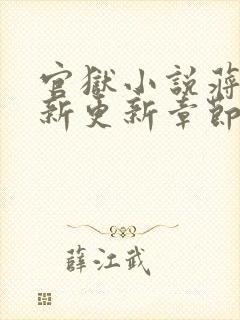 官獄小說蔣
新更新章節
薛江武